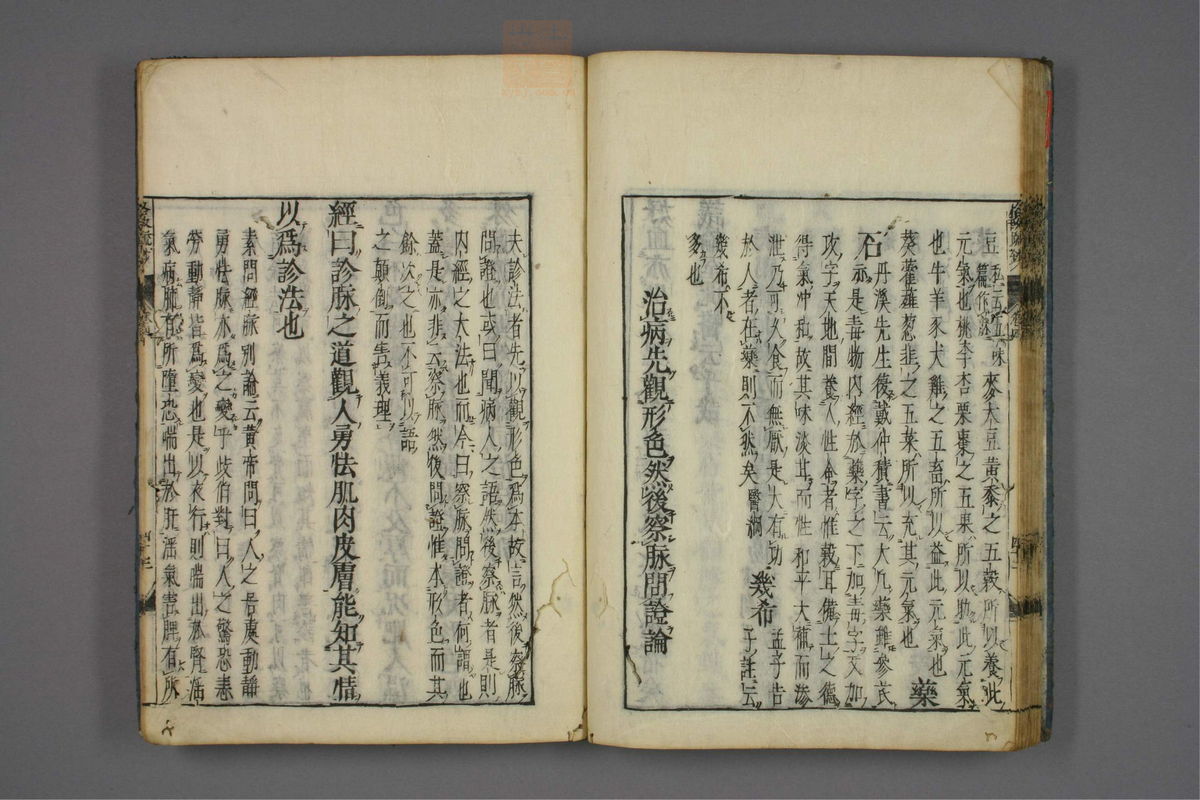 豆 五云五味 麥大豆黄黍之五穀所以養此
元氣也桃李杏栗棗之五果所以助此元氣
也牛羊豕犬雞之五畜所以益此元氣也
葵藿薤葱韭之五菜所以充其元氣也 藥
石 丹溪先生復戴仲積書云大凡藥雖參芪
亦是毒物内經於藥字之下加毒字又加
攻字天地間養人性命者惟穀耳備土之德
得氣冲和故其味淡甘而性和平大補而滲
泄乃可久食而無厭是大有功
於人者在藥則不然矣 幾希 孟子告子註云
幾希不
多也
治病先觀形色然後察脉問證論
夫診法者先以觀形色爲本故言然後察脉
問證也或曰聞病人之語然後察脉者是則
内經之大法也而今曰察脉問證者何謂也
蓋是亦非云察脉然後問證惟本形色而其
餘次之也不可以語
之顛倒而害義理
經曰診脉之道觀人勇怯肌肉皮膚能知其情
以爲診法也
素問經脉別論云黄帝問曰人之居處動靜
勇怯脉亦爲之變乎歧伯對曰人之驚恐恚
勞動靜皆爲變也是以夜行則喘出於腎淫
氣病肺有所墮恐喘出於肝淫氣害脾有所